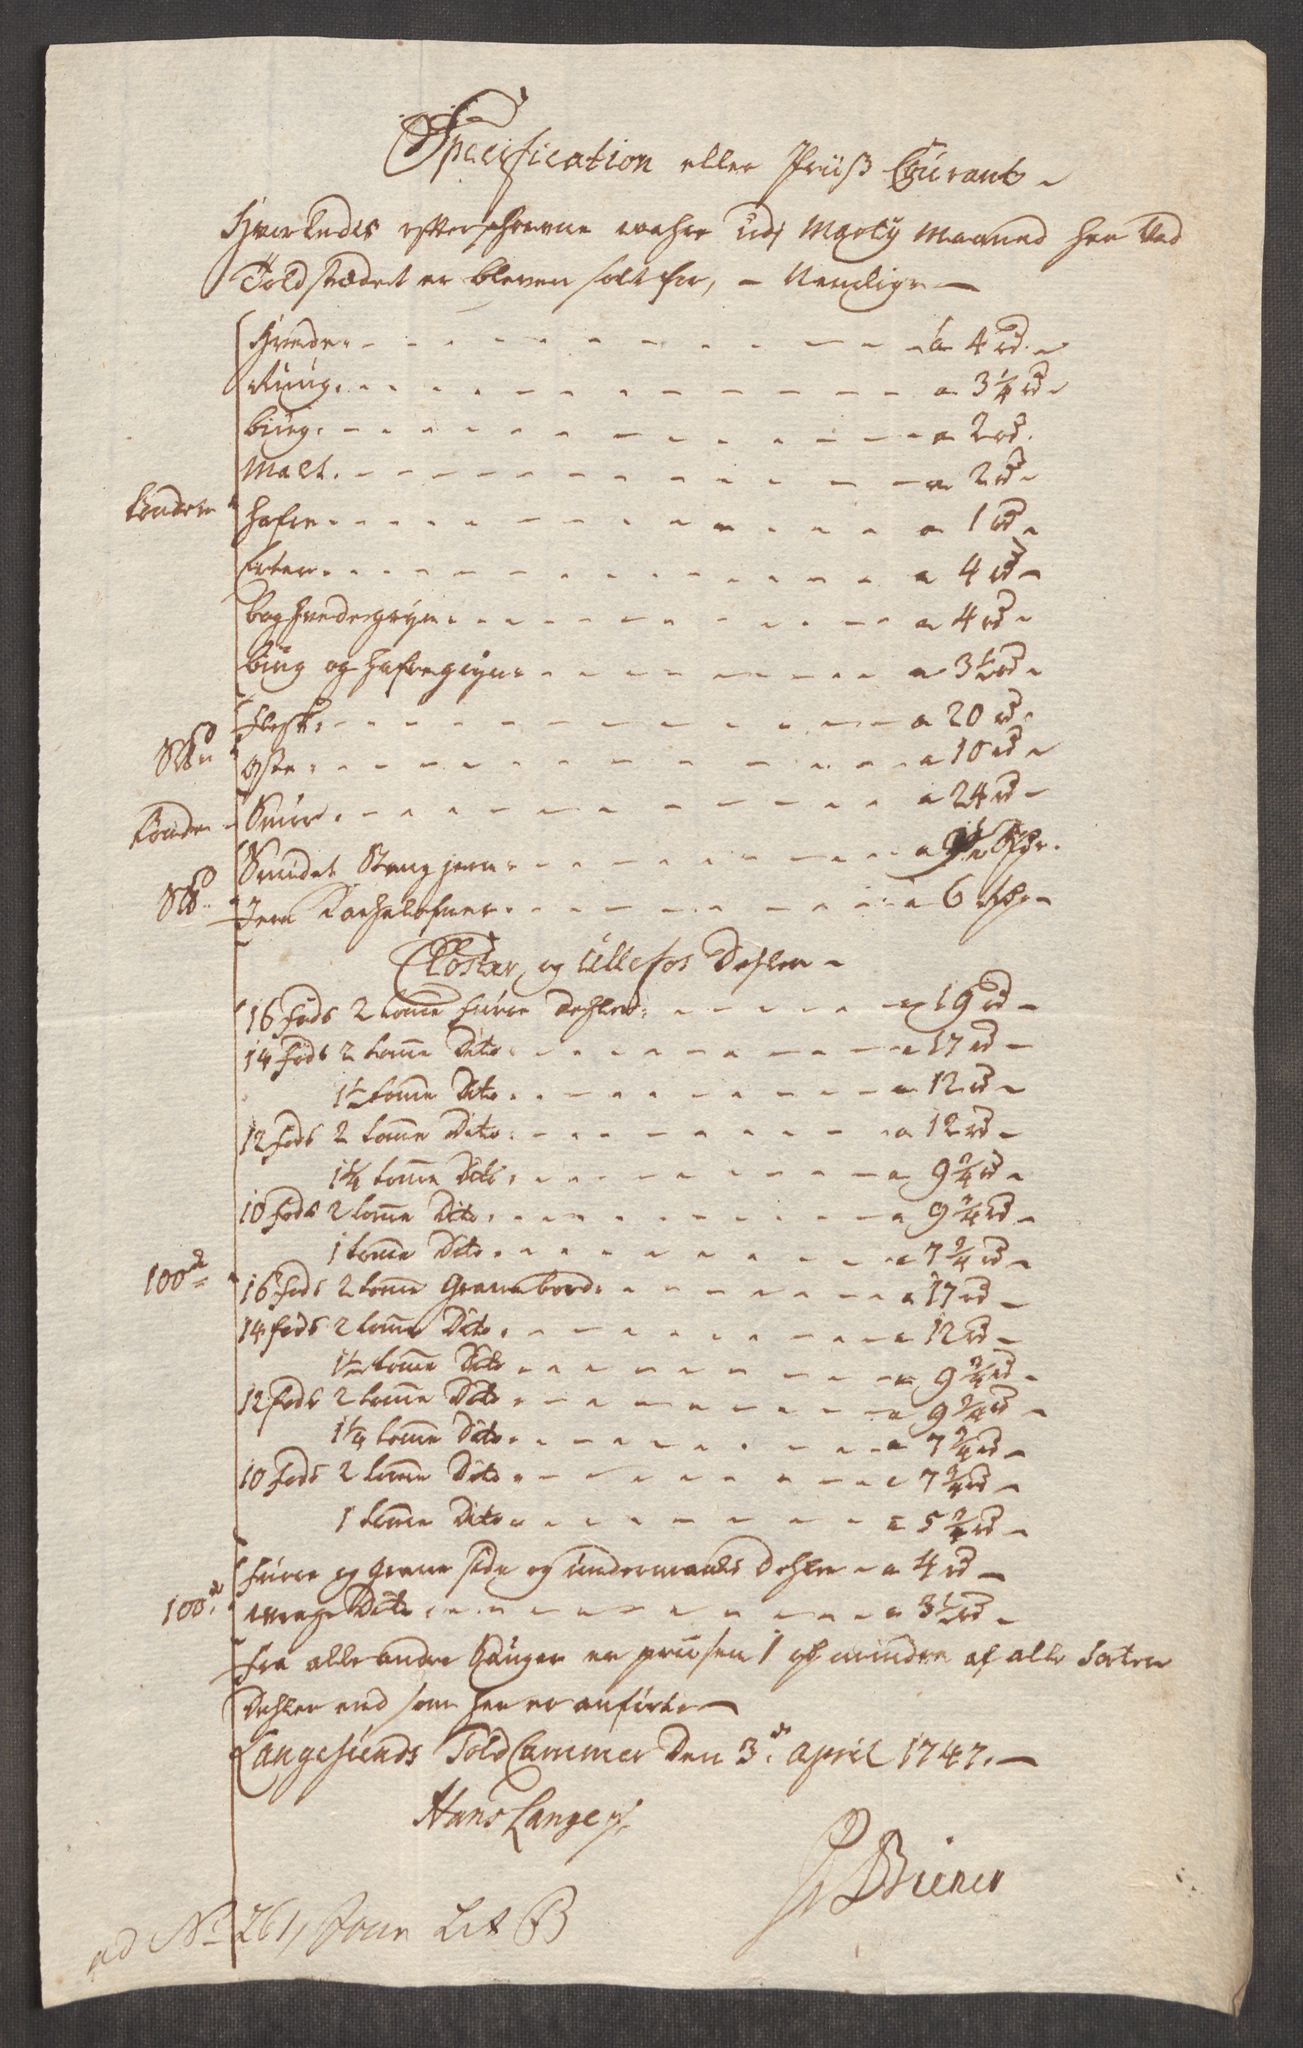 Specification eller Priiß Courant
Hvorledes efterschrevne wahre udj Marty Maaned her Ved
Told stædet er bleven solt for, - Nemlige
Hvede - a 4 rd
Rüug - a 3 1/4 rd
büug - a 2 rd
Malt - a 2 rd
Tønden
hafre - a 1 rd
Erter - a 4 rd
boghvedegryn - a 4 rd
büug og hafregryn - a 3 1/2 rd
Flesk - a 20 rd
oste - a 10 rd
Tønden Smör - a 24 rd
Smidet Stang jern - a
Jern Kachelofner - a 6
Closter og Ullefos Dehler
16 fods 2 tome furre Dehler - a 19 rd
14 fods 2 tome Dito - a 17 rd
1 1/2 tome Dito - a 12 rd
12 fods 2 tome Dito - a 12 rd
1 1/4 tome Dito - a 9 3/4 rd
10 fods 2 tome Dito - a 9 3/4 rd
1 tome Dito - a 7 3/4 rd
100de
16 fods 2 tome Granebord - a 17 rd
14 fods 2 tome Dito - a 12 rd
1 1/2 tome Dito - a 9 3/4 rd
12 fods 2 tome Dito - a 9 3/4 rd
1 1/4 tome Dito - a 7 3/4 rd
10 fods 2 tome Dito - a 7 3/4 rd
1 tome Dito - a 5 3/4 rd
furre og grane side og undermaals Dehler - a 4 rd
100de wrage Dito - a 3 1/2 rd
fra alle andre Sauger er priisen 1 mindre af alle Sorter
Dehler end som her er anført
Langesunds Told Cammer Den 3de April 1747.
Hans Lange
Biener
ad No 261, Lit B